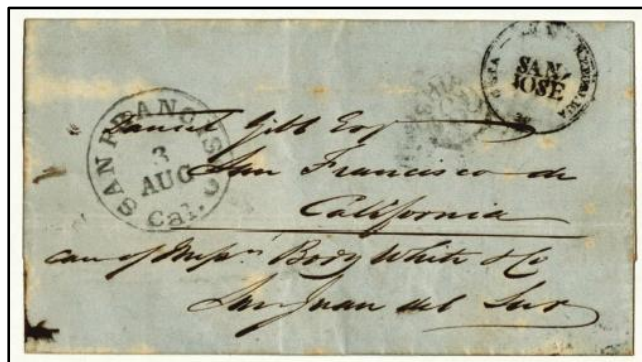 SAN FRANCISCO
3
AUG
Cal.
SAN
JOSÉ
Daniel Gibb Esq
San Francisco de
California
care of Messrs Body White & Co
San Juan del Sur